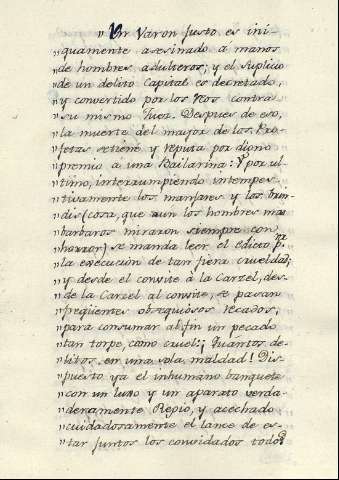 "Un Varon justo es ini-
"quamente asesinado a manos
"de hombres adulteros; y el suplicio
"de un delito Capital es decretado,
"y convertido por los Reos contra
"su mismo Juez. Despues de eso,
"la muerte del mayor de los Pro-
"fetas se tiene y reputa por digno
"premio à una Bailarina: Y por ul-
"timo, interrumpiendo intempes-
"tivamente los manjares y los brin-
"dis (cosa, que aun los hombres mas
"barbaros miraron siempre con
"horror) se manda leer el edicto pª
"la execucion de tan fiera crueldad;
"y desde el convite à la Carzel, des-
"de la Carzel al convite, se pasan
"freqüentes obsequiosos recados,
"para consumar al fin un pecado
"tan torpe, como cruel: ¡Quantos de-
"litos en una sola maldad! Dis-
"puesto ya el inhumano banquete
"con un luxo y un aparato verda-
"deramente Regio, y acechado
"cuidadosamente el lance de es-
"tar juntos los convidados todos